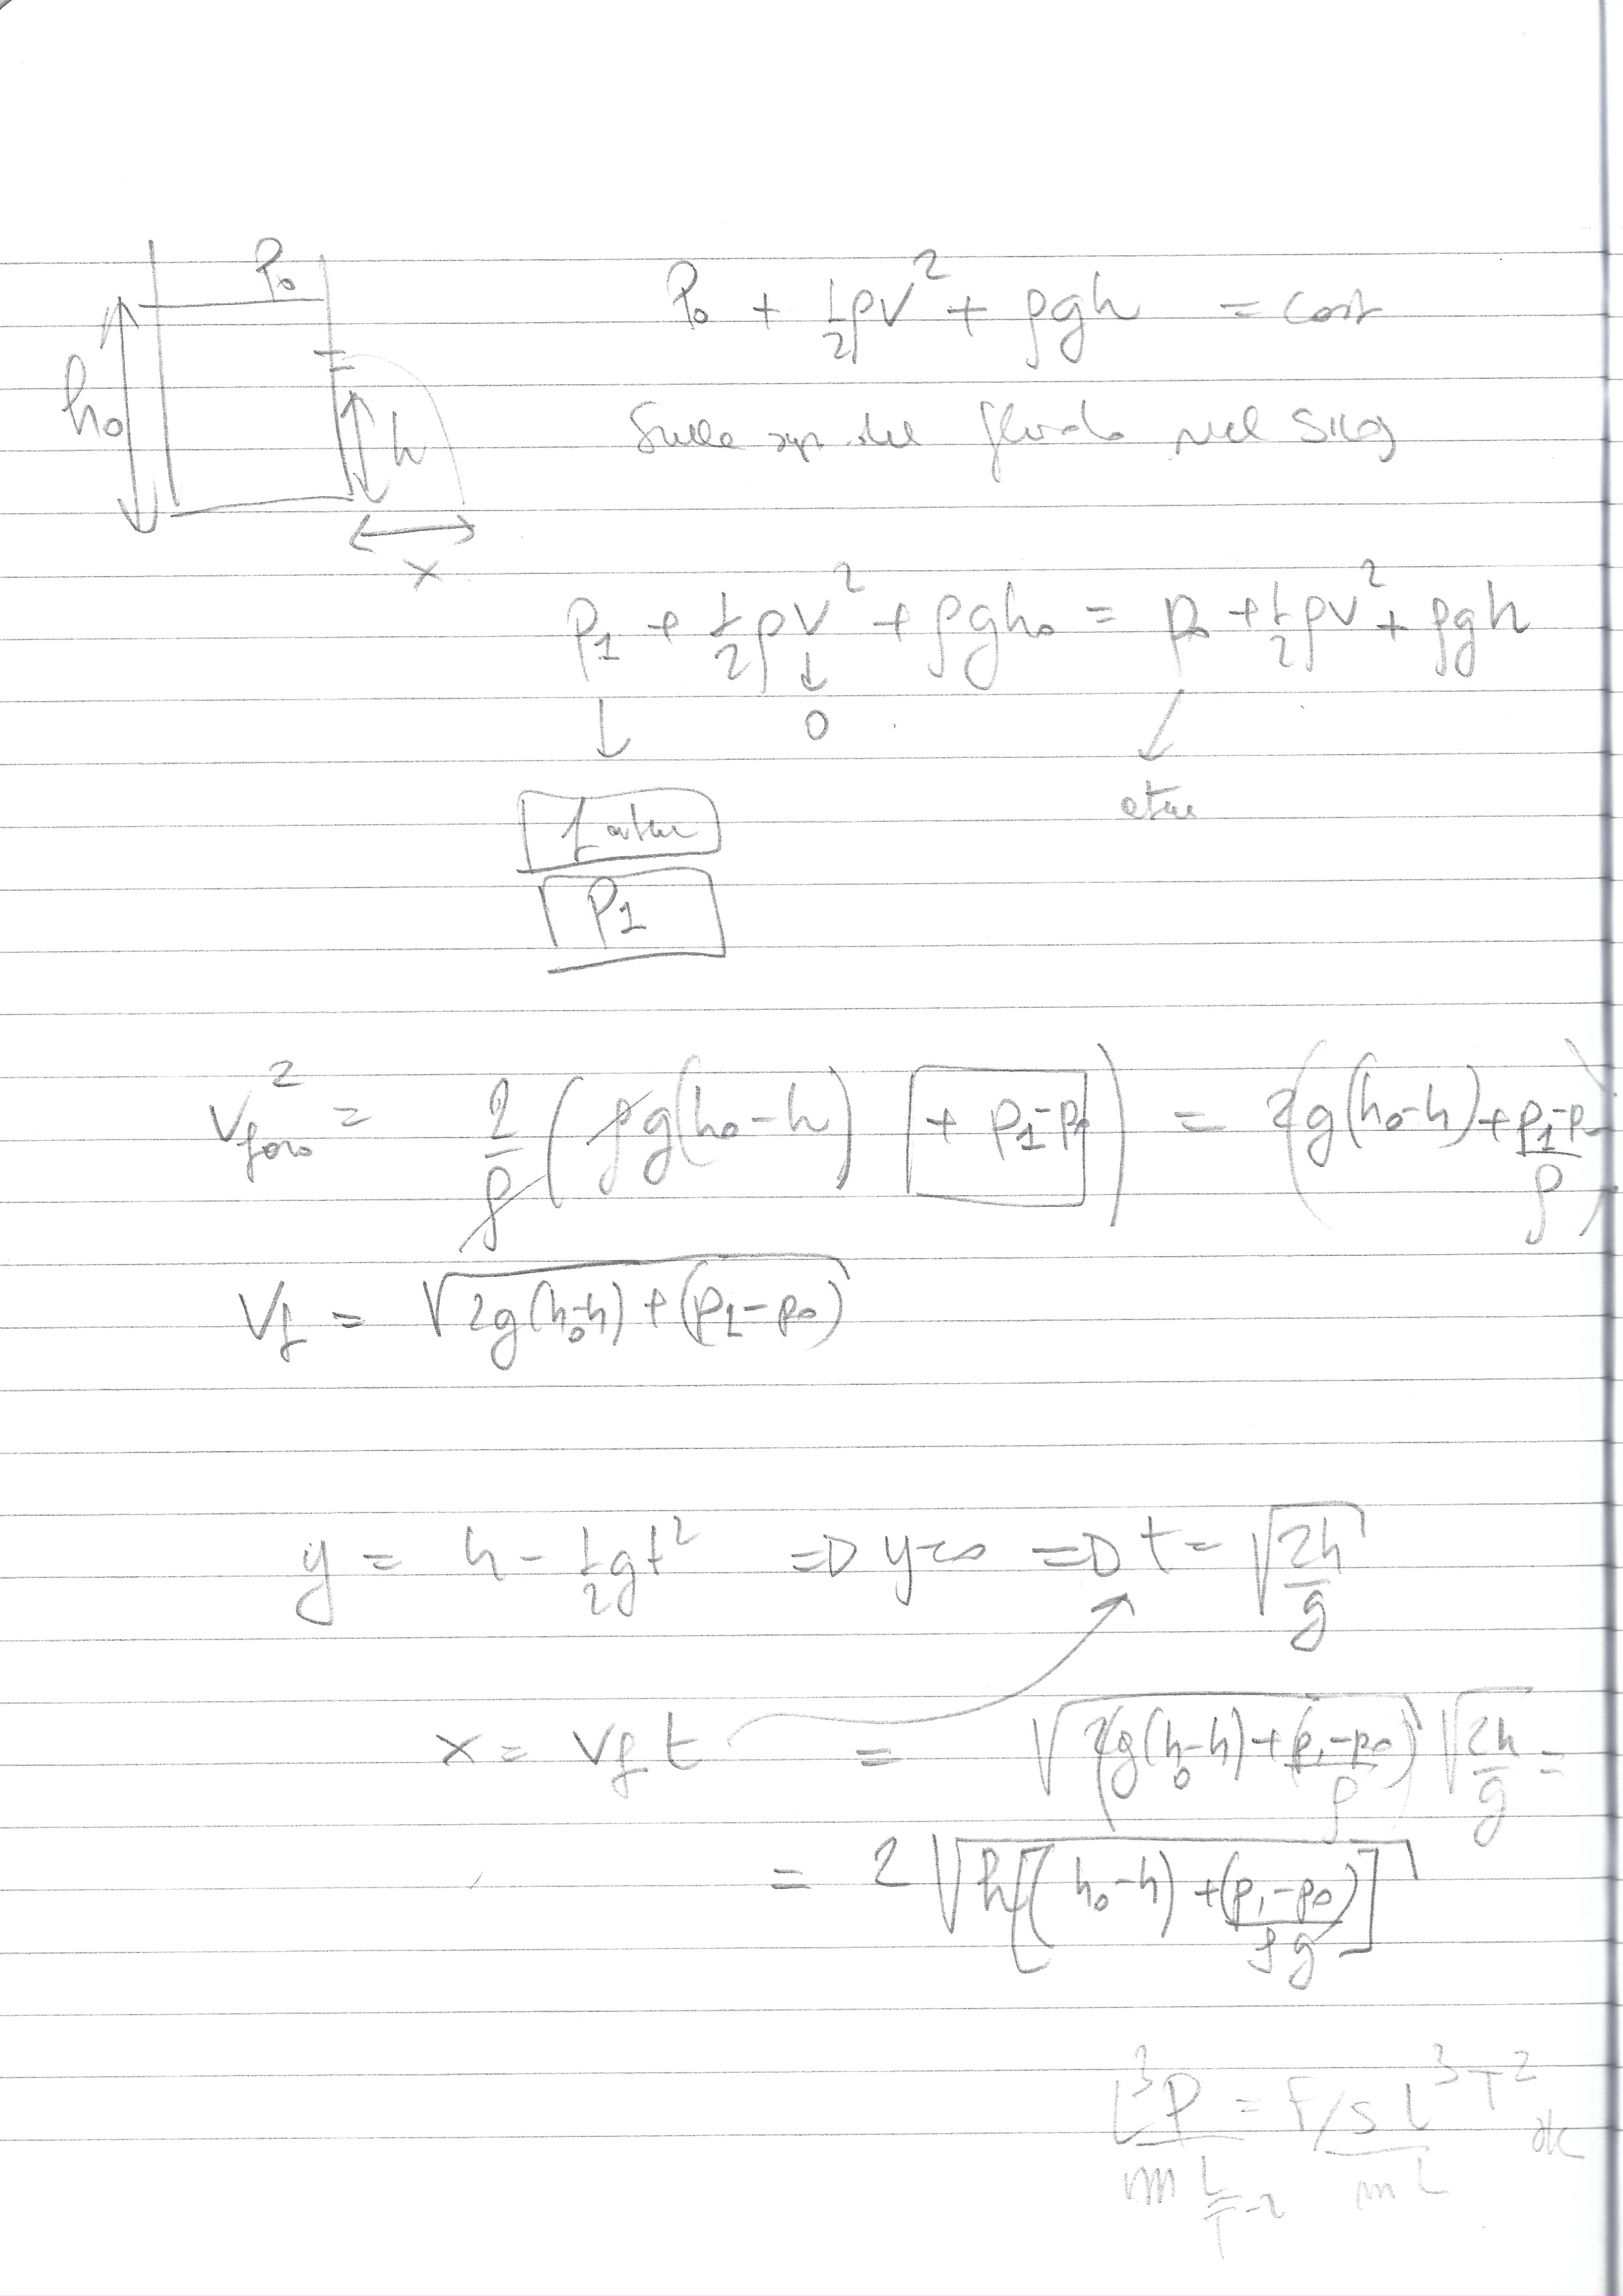 P₀
h₀
h
x
P₀ + ½ρv² + ρgh = cost
Sulla sup. del fluido nel silos
p₁ + ½ρv² + ρgh₀ = p₀ + ½ρv² + ρgh
0
1 atm
atm
P₁
v²foro = 2/ρ (ρg(h₀-h) + p₁-p₀) = 2(g(h₀-h) + (p₁-p₀)/ρ)
Vf = √(2g(h₀-h) + (p₁-p₀))
y = h - ½gt² => y=0 => t = √(2h/g)
x = vf t = √(2(g(h₀-h) + (p₁-p₀)/ρ)) √(2h/g) =
= 2 √(h[(h₀-h) + (p₁-p₀)/ρg])
L³P = F/S L³ T² ok
m L/T-2 m L